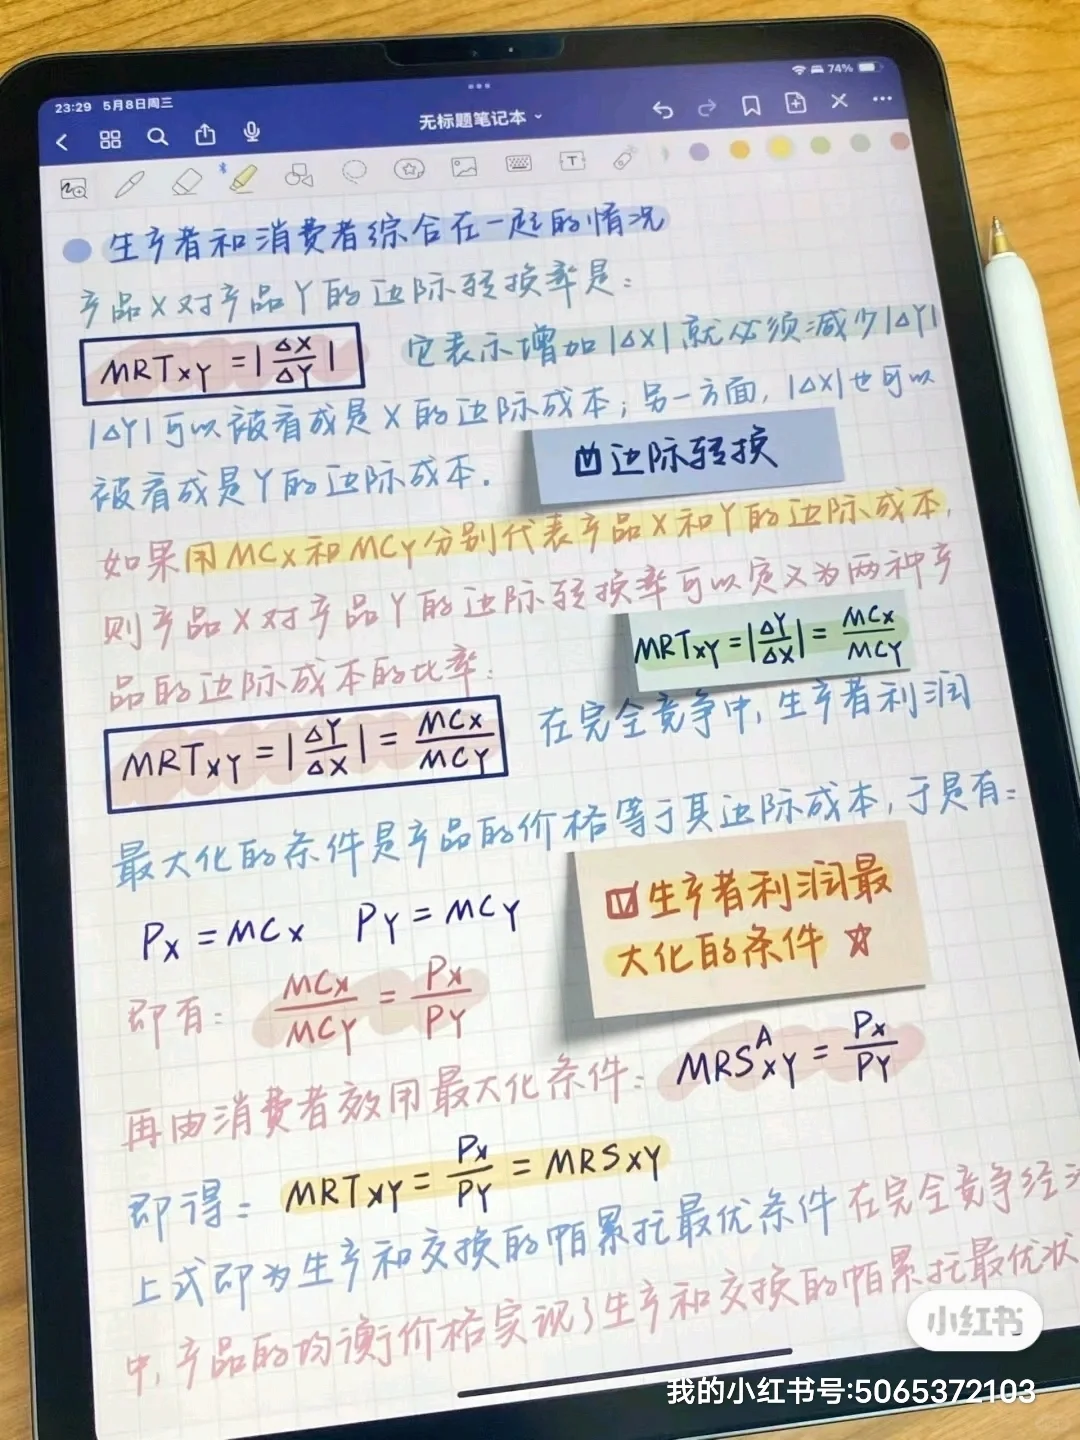 23:29 5月8日周三
74%
无标题笔记本
T
生产者和消费者综合在一起的情况
产品X对产品Y的边际转换率是:
MRTxY = |ΔX/ΔY| 它表示增加|ΔX|就必须减少|ΔY|
|ΔY|可以被看成是X的边际成本;另一方面,|ΔX|也可以
被看成是Y的边际成本.
边际转换
如果用MCx和MCY分别代表产品X和Y的边际成本,
则产品X对产品Y的边际转换率可以定义为两种产
品的边际成本的比率:
MRTxY = |ΔY/ΔX| = MCx/MCY
MRTxY = |ΔY/ΔX| = MCx/MCY 在完全竞争中,生产者利润
最大化的条件是产品的价格等于其边际成本,于是有:
Px = MCx PY = MCY
生产者利润最
大化的条件
即有: MCx/MCY = Px/PY
再由消费者效用最大化条件: MRS^A xY = Px/PY
即得: MRTxY = Px/PY = MRSxY
上式即为生产和交换的帕累托最优条件 在完全竞争经
中,产品的均衡价格实现了生产和交换的帕累托最优状
小红书
我的小红书号:5065372103